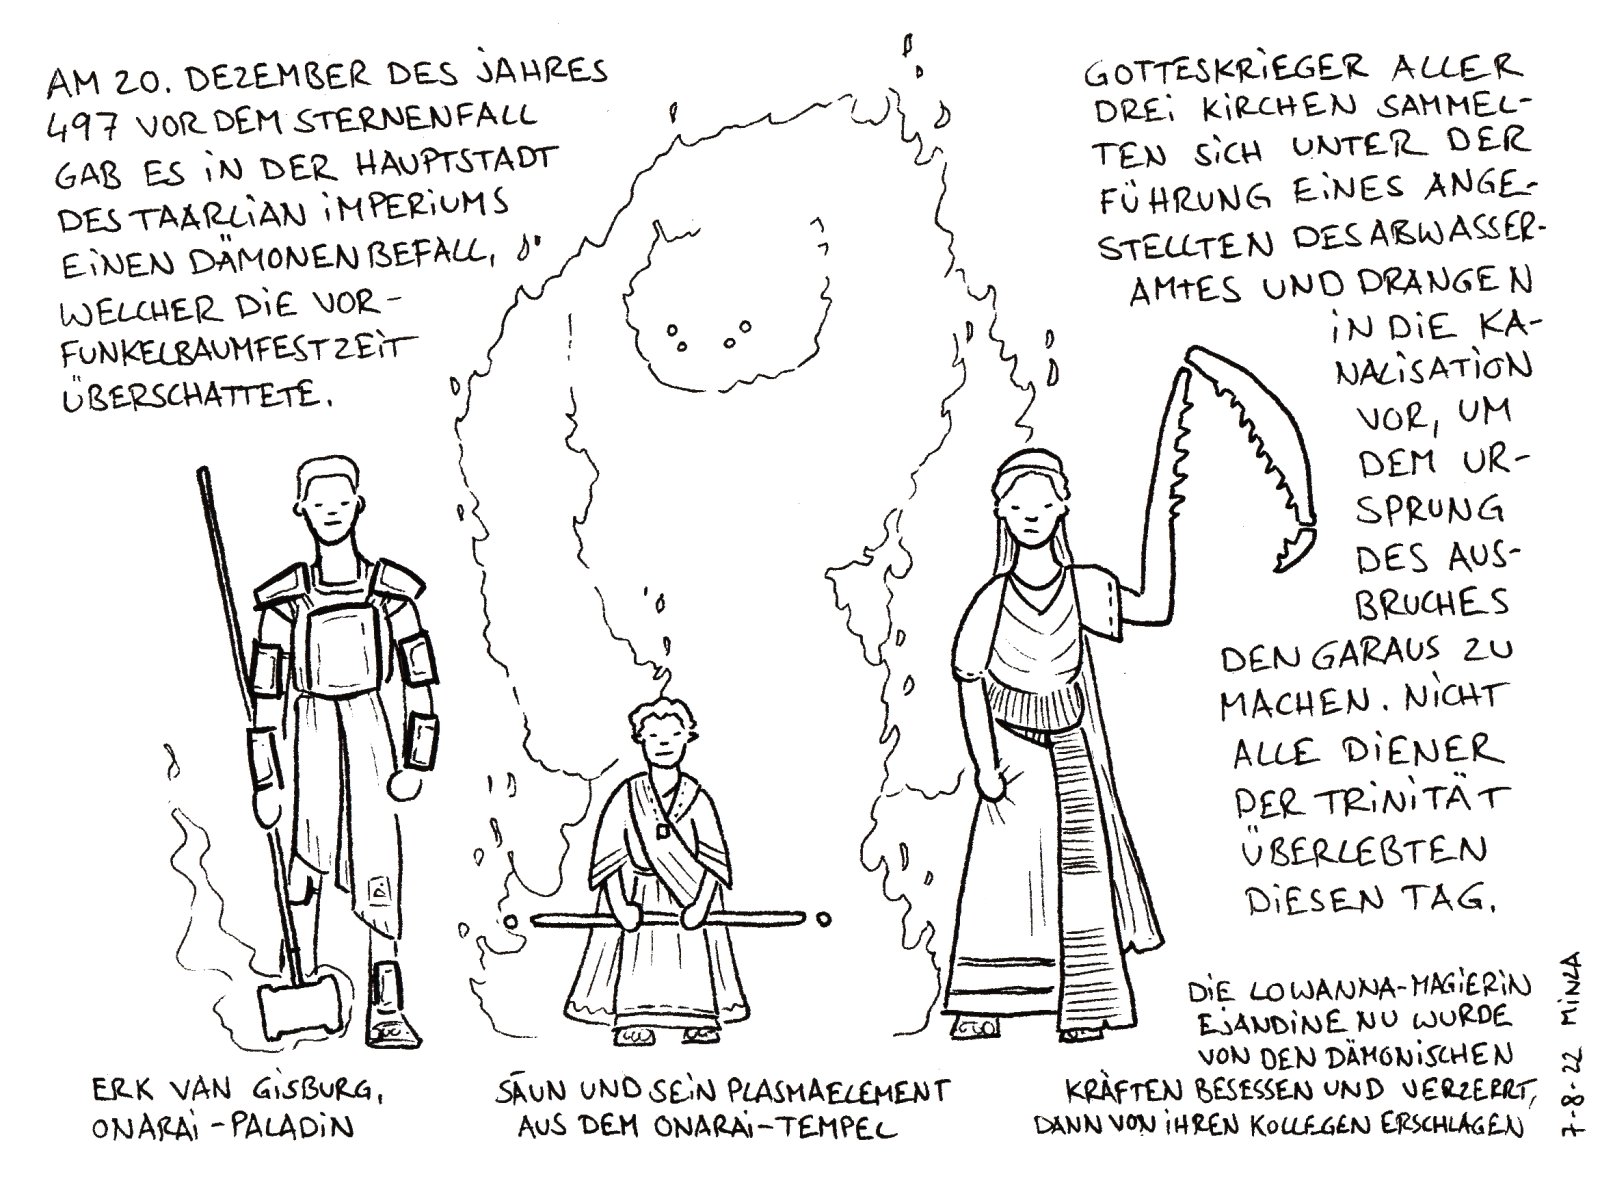 AM 20. DEZEMBER DES JAHRES
497 VOR DEM STERNENFALL
GAB ES IN DER HAUPTSTADT
DES TAARLIAN IMPERIUMS
EINEN DÄMONENBEFALL,
WELCHER DIE VOR-
FUNKELBAUMFESTZEIT
ÜBERSCHATTETE.
GOTTESKRIEGER ALLER
DREI KIRCHEN SAMMEL-
TEN SICH UNTER DER
FÜHRUNG EINES ANGE-
STELLTEN DES ABWASSER-
AMTES UND DRANGEN
IN DIE KA-
NALISATION
VOR, UM
DEM UR-
SPRUNG
DES AUS-
BRUCHES
DEN GARAUS ZU
MACHEN. NICHT
ALLE DIENER
DER TRINITÄT
ÜBERLEBTEN
DIESEN TAG.
ERK VAN GISBURG,
ONARAI-PALADIN
SÄUN UND SEIN PLASMAELEMENT
AUS DEM ONARAI-TEMPEL
DIE LOWANNA-MAGIERIN
EJANDINE NU WURDE
VON DEN DÄMONISCHEN
KRÄFTEN BESESSEN UND VERZERRT,
DANN VON IHREN KOLLEGEN ERSCHLAGEN
7-8-22 MINZA